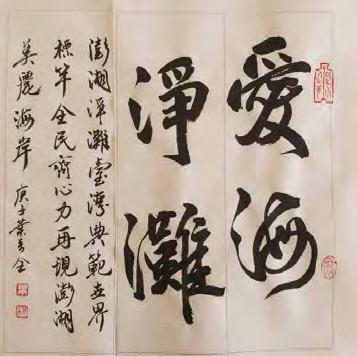 愛海
淨灘
澎湖淨灘臺灣典範世界
標竿全民齊心力再現澎湖
美麗海岸 庚子葉金全